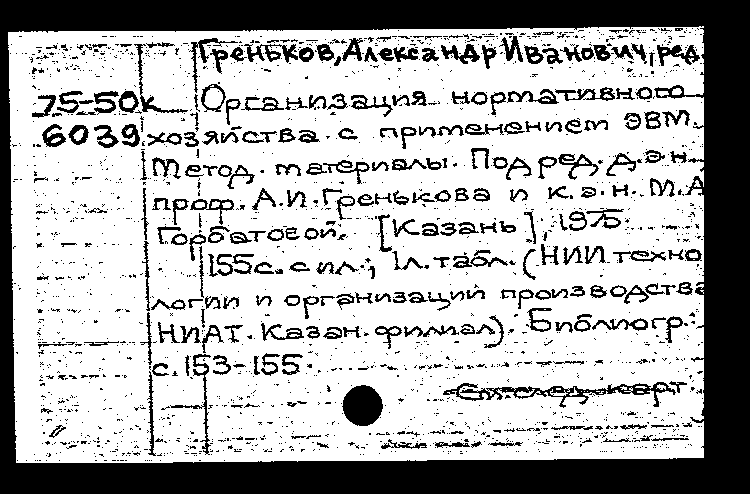 Греньков, Александр Иванович, ред.
75-50к Организация нормативного
6039 хозяйства с применением ЭВМ.
Метод. материалы. Под ред. д.э.н.,
проф. А.И. Гренькова и к.э.н. М.А
Горбатовой. [Казань], 1975.
155с. с ил.; 1л. табл. (НИИ техно
логии и организации производства
НИАТ. Казан. филиал). Библиогр.:
с. 153-155.
См. след. карт.